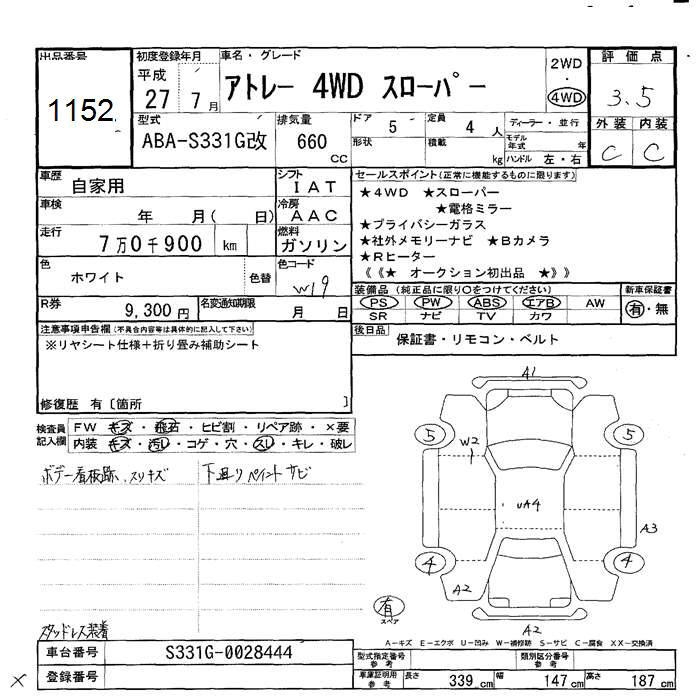 出品番号
1152
初度登録年月
平成
27 7 月
車名・グレード
アトレー 4WD スローパー
2WD
・
4WD
評価点
3.5
外装 内装
C C
型式
ABA-S331G改
排気量
660
CC
ドア 5
定員 4 人
形状
積載 kg
ディーラー・並行
モデル年式 年
ハンドル 左・右
車歴
自家用
シフト
IAT
車検
年 月( 日)
冷房
AAC
走行
7万0千900 km
燃料
ガソリン
色
ホワイト
色替
色コード
W19
R券
9,300円
名変通知期限
月 日
セールスポイント(正常に機能するものに限ります)
★4WD ★スローパー
★電格ミラー
★プライバシーガラス
★社外メモリーナビ ★Bカメラ
★Rヒーター
《《★ オークション初出品 ★》》
装備品(純正品に限り○をつけてください)
PS PW ABS エアB AW
SR ナビ TV カワ
新車保証書
有・無
後日品
保証書・リモコン・ベルト
注意事項申告欄(不具合内容等は具体的に記入して下さい)
※リヤシート仕様+折り畳み補助シート
修復歴 有〔箇所 〕
検査員記入欄
FW キズ・飛石・ヒビ割・リペア跡・×要
内装 キズ・汚レ・コゲ・穴・スレ・キレ・破レ
ボデー看板跡、スリキズ
下廻りペイントサビ
スタッドレス装着
A1
5 5
W2
UA4
A3
4 4
A2
A2
有
スペア
A-キズ E-エクボ U-凹み W-補修跡 S-サビ C-腐食 XX-交換済
車台番号
S331G-0028444
登録番号
×
型式指定番号
参考
類別区分番号
参考
車庫証明用
参考
長さ 339 cm
幅 147 cm
高さ 187 cm